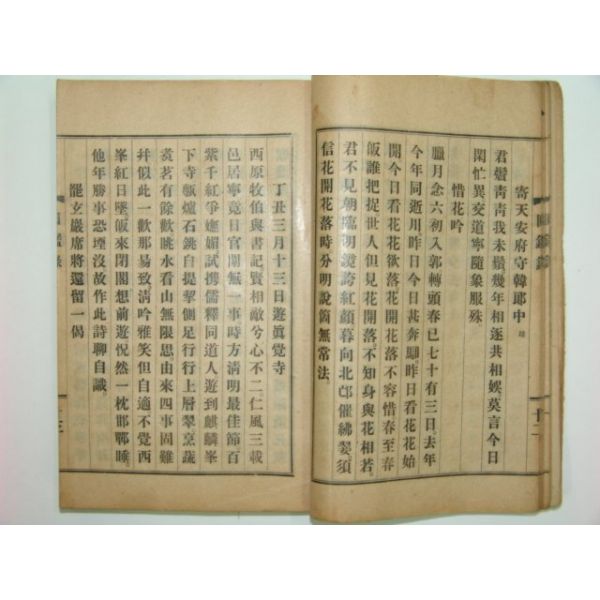 寄天安府守韓郎中
君鬢靑靑我未鬚幾年相逐共相娛莫言今日
閑忙異交道寧隨象服殊
惜花吟
臘月念六初入郭轉頭春已七十有三日去年
今年同逝川昨日今日甚奔馹昨日看花花始
開今日看花花欲落花開花落不容惜春至春
皈誰把捉世人但見花開落不知身與花相若
君不見朝臨明鏡誇紅顔暮向北邙催紼翣須
信花開花落時分明說箇無常法
丁丑三月十三日遊眞覺寺
西原牧伯與書記賢相敵兮心不二仁風三載
邑居寧竟日官閑無一事時方淸明最佳節百
紫千紅爭嫵媚試携儒釋同道人遊到麒麟峯
下寺甎爐石銚自提挈側足行行上層翠烹蔬
煑茗有餘歡眺水看山無限思由來四事固難
幷似此一歡那易致淸吟雅笑但自適不覺西
峯紅日墜皈來閉閤想前遊怳然一枕邯鄲睡
他年勝事恐堙沒故作此詩聊自識
龍玄巖席將還留一偈
十二
十三